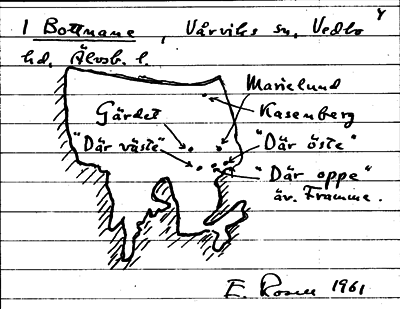 1 Bottnane, Vårviks sn, Vedbo
hd. Älvsb. l.
Marielund
Kasenberg
Gärdet
"Där väste"
"Där öste"
"Där oppe"
äv. Framme.
E. Rosell 1961